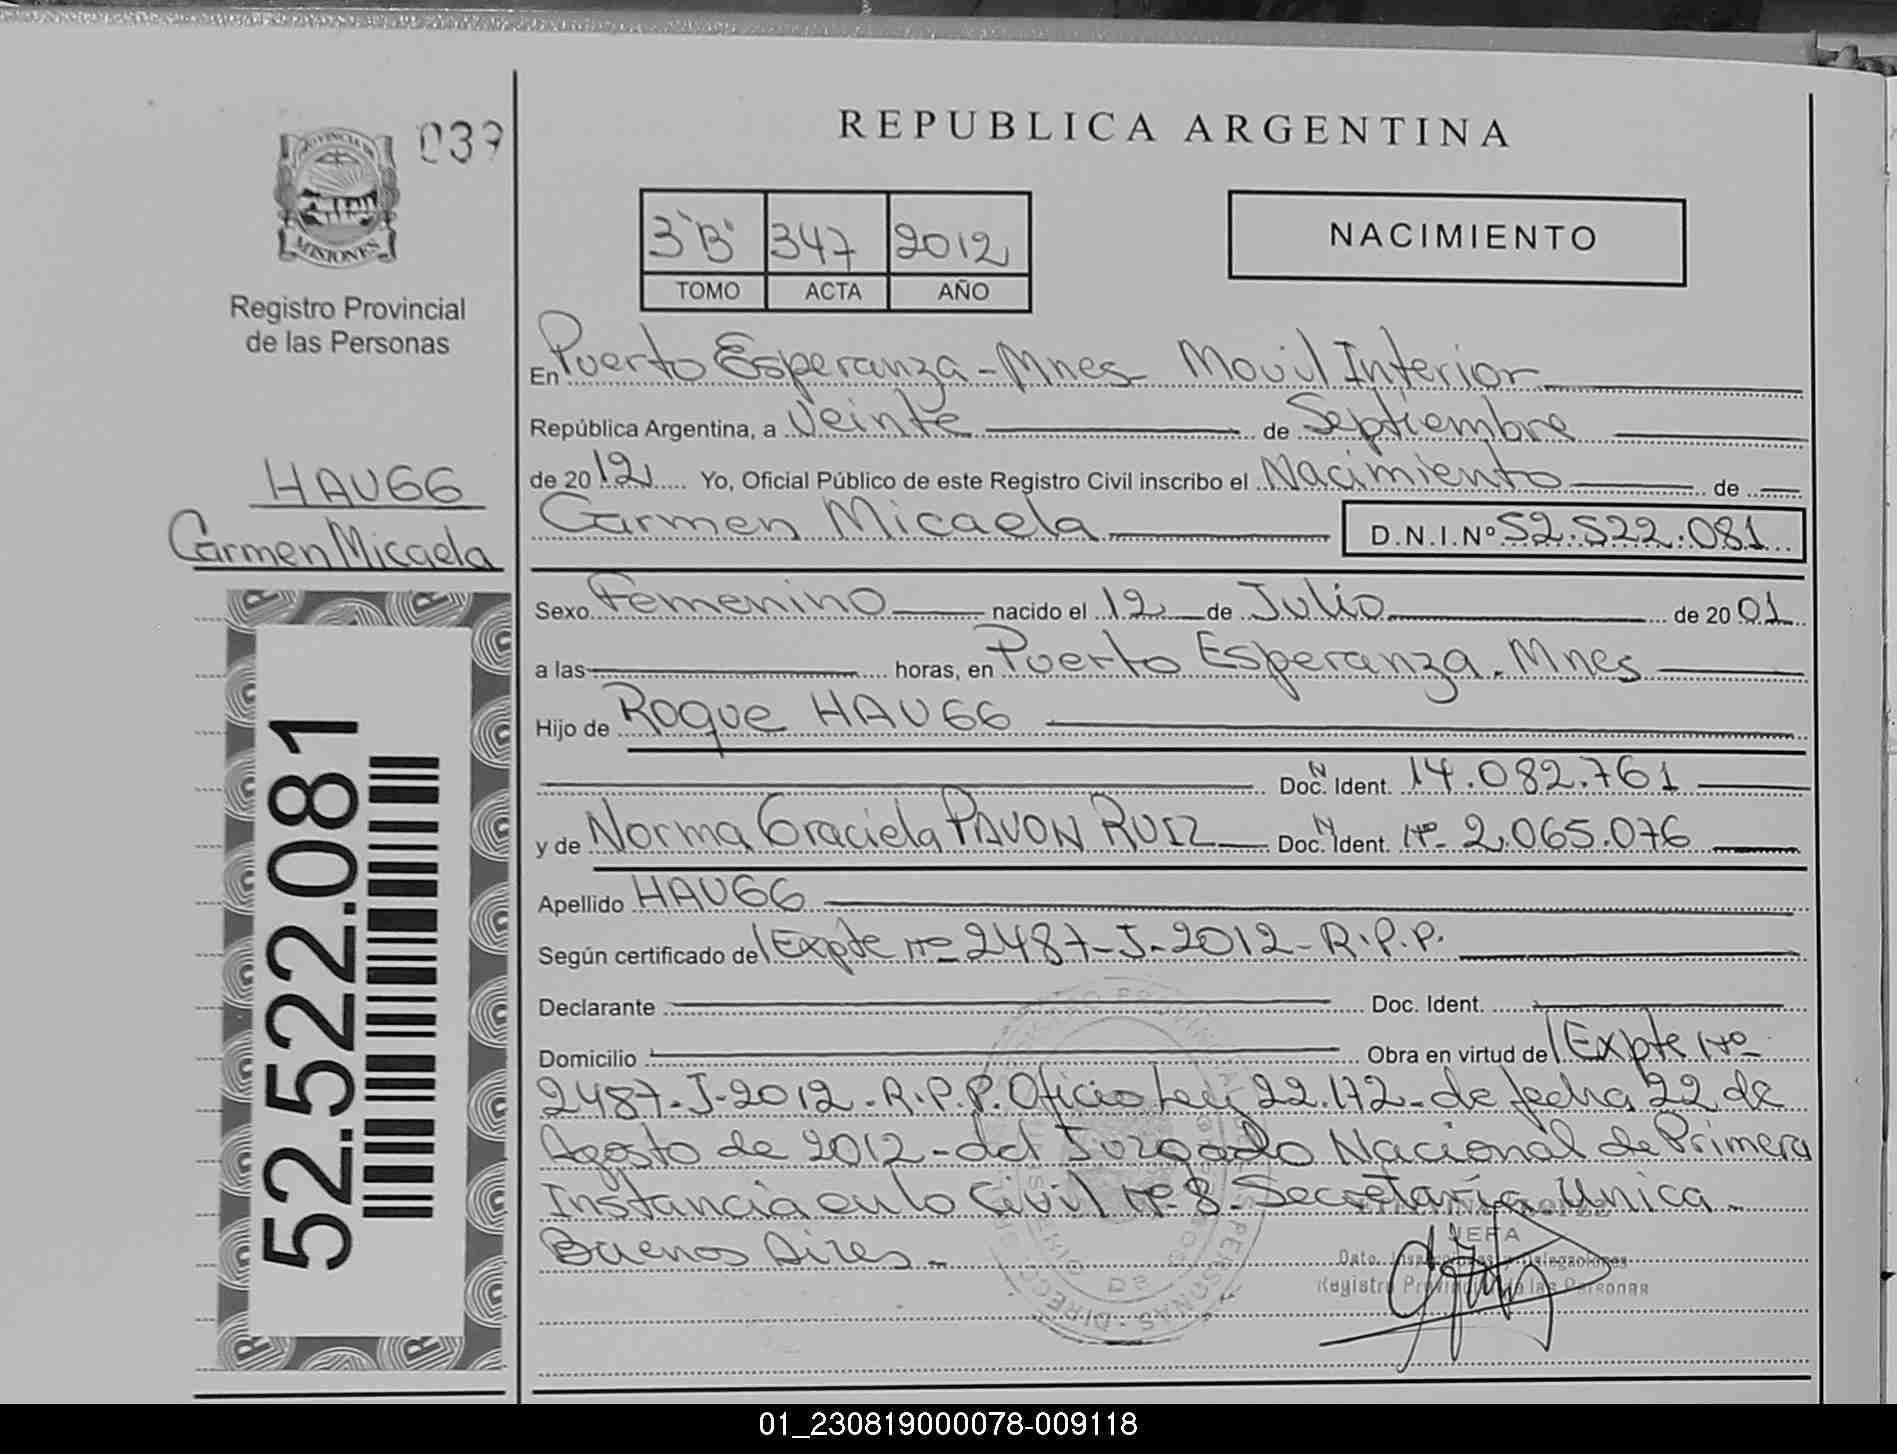 REPUBLICA ARGENTINA
039
PROVINCIA DE
MISIONES
Registro Provincial
de las Personas
3"B" 347 2012
TOMO ACTA AÑO
NACIMIENTO
HAUGG
Carmen Micaela
52.522.081
En Puerto Esperanza - Mnes Movil Interior
República Argentina, a Veinte de Septiembre
de 2012 Yo, Oficial Público de este Registro Civil inscribo el Nacimiento de
Carmen Micaela D.N.I.Nº 52.522.081
Sexo Femenino nacido el 12 de Julio de 2001
a las horas, en Puerto Esperanza. Mnes
Hijo de Roque HAUGG
Doc. N Ident. 14.082.761
y de Norma Graciela PAVON RUIZ Doc. N Ident. Nº 2.065.076
Apellido HAUGG
Según certificado de Expte Nº 2487-J-2012-R.P.P.
Declarante Doc. Ident.
Domicilio Obra en virtud de Expte Nº
2487-J-2012-R.P.P. Oficio Ley 22.172-de fecha 22 de
Agosto de 2012-del Juzgado Nacional de Primera
Instancia en lo Civil Nº 8- Secretaría Unica-
Buenos Aires.-
JEFA
Registro Provincial de las Personas
01_230819000078-009118